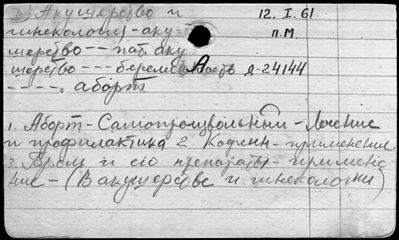 D) Акушерство и 12. I. 61.
гинекология - аку п.М.
шерство --- пат. аку
шерство --- беременность Д-24144
- - - -. аборт
1. Аборт - Самопроизвольный - Лечение
и профилактика 2. Кодеин - применение
3. Бром и его препараты - примене
ние - (В акушерстве и гинекологии)